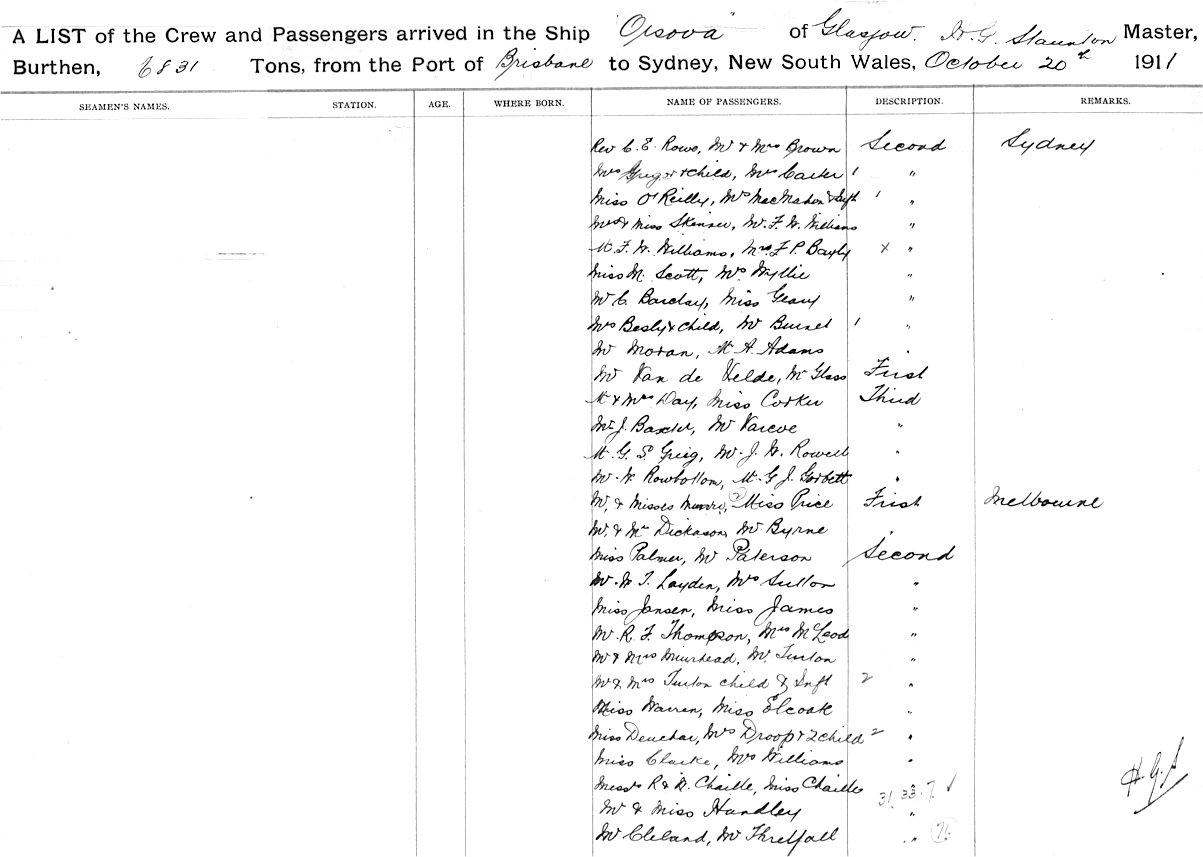 A LIST of the Crew and Passengers arrived in the Ship Orsova of Glasgow. H. G. Staunton Master,
Burthen, 6831 Tons, from the Port of Brisbane to Sydney, New South Wales, October 20th 1911
SEAMEN'S NAMES. STATION. AGE. WHERE BORN. NAME OF PASSENGERS. DESCRIPTION. REMARKS.
Rev C. E. Rowe, Mr & Mrs Brown Second Sydney
Mrs & child, Mrs Carter 1 "
Miss O'Reilly, Mrs MacMahon & Inft 1 "
Mrs & Miss Skinner, Mr. F. W. Williams "
Mr F. W. Williams, Mrs F P. Bayly x "
Miss M. Scott, Mrs Wyllie "
Mr C. Barclay, Miss Geary "
Mrs Besly & child, Mr Burnet 1 "
Mr Moran, Mr A. Adams "
Mr Van de Velde, Mr Glass First
Mr & Mrs Day, Miss Corker Third
Mr J. Baxter, Mr Vareoe "
Mr G. S. Greig, Mr. J. W. Rowell "
Mr. W. Rowbottom, Mr. G J. Gorbett "
Mr. & Misses Munro, Miss Price First Melbourne
Mr. & Mrs Dickason, Mr Byrne "
Miss Palmer, Mr Paterson Second
Mr. W. T. Layden, Mrs Sutton "
Miss Jansen, Miss James "
Mr. R. F. Thompson, Mrs McLeod "
Mr & Mrs Muirhead, Mr. Turton "
Mr & Mrs Turton child & Inft 2 "
Miss Warren, Miss Elcoate "
Miss Deuchar, Mrs Droop & 2 child 2 "
Miss Clarke, Mrs Williams "
Messrs R & W. Chaille, Miss Chaille 31. 33. 7. ✓
Mr & Miss Handley "
Mr Cleland, Mr Threlfall " 71.
H. G. S